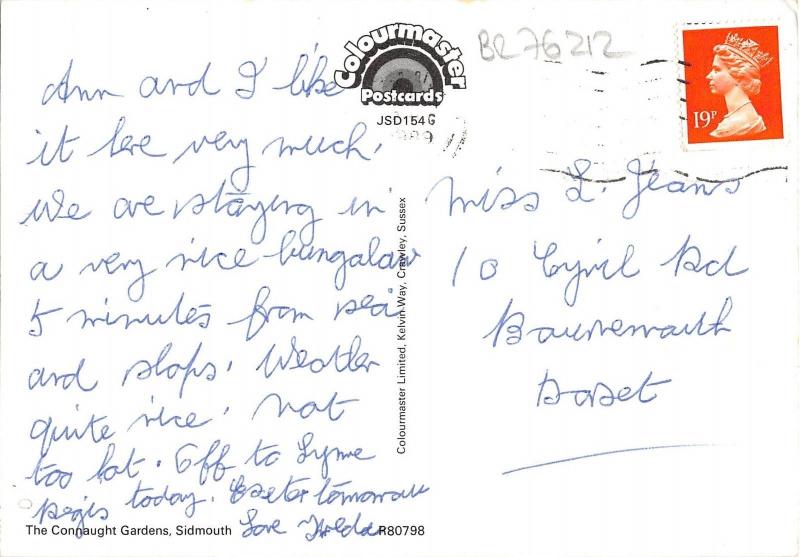 Colourmaster
Postcards
JSD154G
1989
BR76212
19P
Ann and I like
it here very much.
We are staying in
a very nice bungalow
5 minutes from sea
and shops. Weather
quite nice. not
too hot. Off to Lyme
Regis today. Exeter tomorrow
Love Hilda
Miss L. Jeans
10 Cyril Rd
Bournemouth
Dorset
Colourmaster Limited, Kelvin Way, Crawley, Sussex
The Connaught Gardens, Sidmouth
R80798